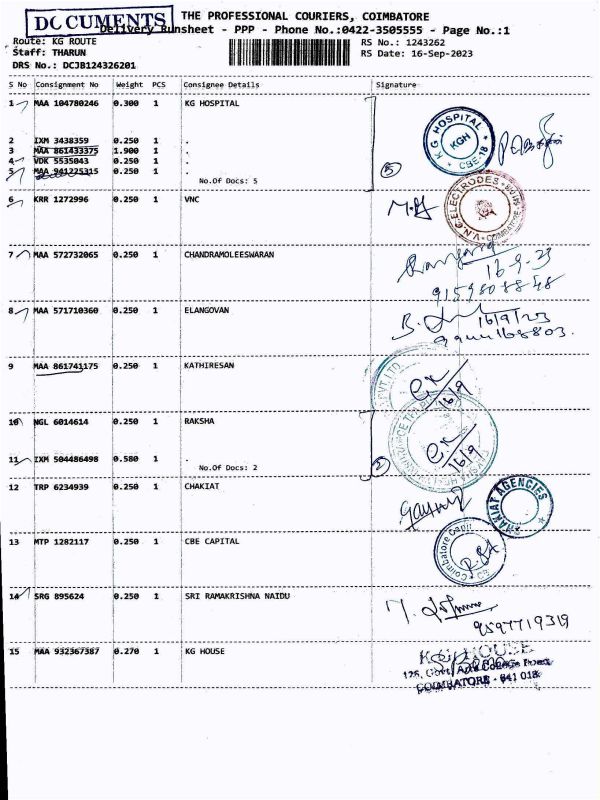 DOCUMENTS
THE PROFESSIONAL COURIERS, COIMBATORE
Delivery Runsheet - PPP - Phone No.:0422-3505555 - Page No.:1
Route: KG ROUTE
RS No.: 1243262
Staff: THARUN
RS Date: 16-Sep-2023
DRS No.: DCJB124326201
S No Consignment No Weight PCS Consignee Details Signature
1 MAA 104780246 0.300 1 KG HOSPITAL
KG HOSPITAL KGH CBE-18
2 IXM 3438359 0.250 1 .
3 MAA 861433375 1.900 1 .
4 VDK 5535043 0.250 1 .
5 MAA 941225315 0.250 1 .
No.Of Docs: 5
5
6 KRR 1272996 0.250 1 VNC
V.N.C ELECTRODES COIMBATORE
7 MAA 572732065 0.250 1 CHANDRAMOLEESWARAN
16-9-23
9159808848
8 MAA 571710360 0.250 1 ELANGOVAN
16/9/23
9 MAA 861741175 0.250 1 KATHIRESAN
PVT LTD
16/9
10 NGL 6014614 0.250 1 RAKSHA
16/9
11 IXM 504486498 0.580 1 .
No.Of Docs: 2
2
12 TRP 6234939 0.250 1 CHAKIAT
CHAKIAT AGENCIES
13 MTP 1282117 0.250 1 CBE CAPITAL
Coimbatore Capital
14 SRG 895624 0.250 1 SRI RAMAKRISHNA NAIDU
9597719319
15 MAA 932367387 0.270 1 KG HOUSE
KG HOUSE
126, Govt. Arts College Road,
COIMBATORE - 641 018